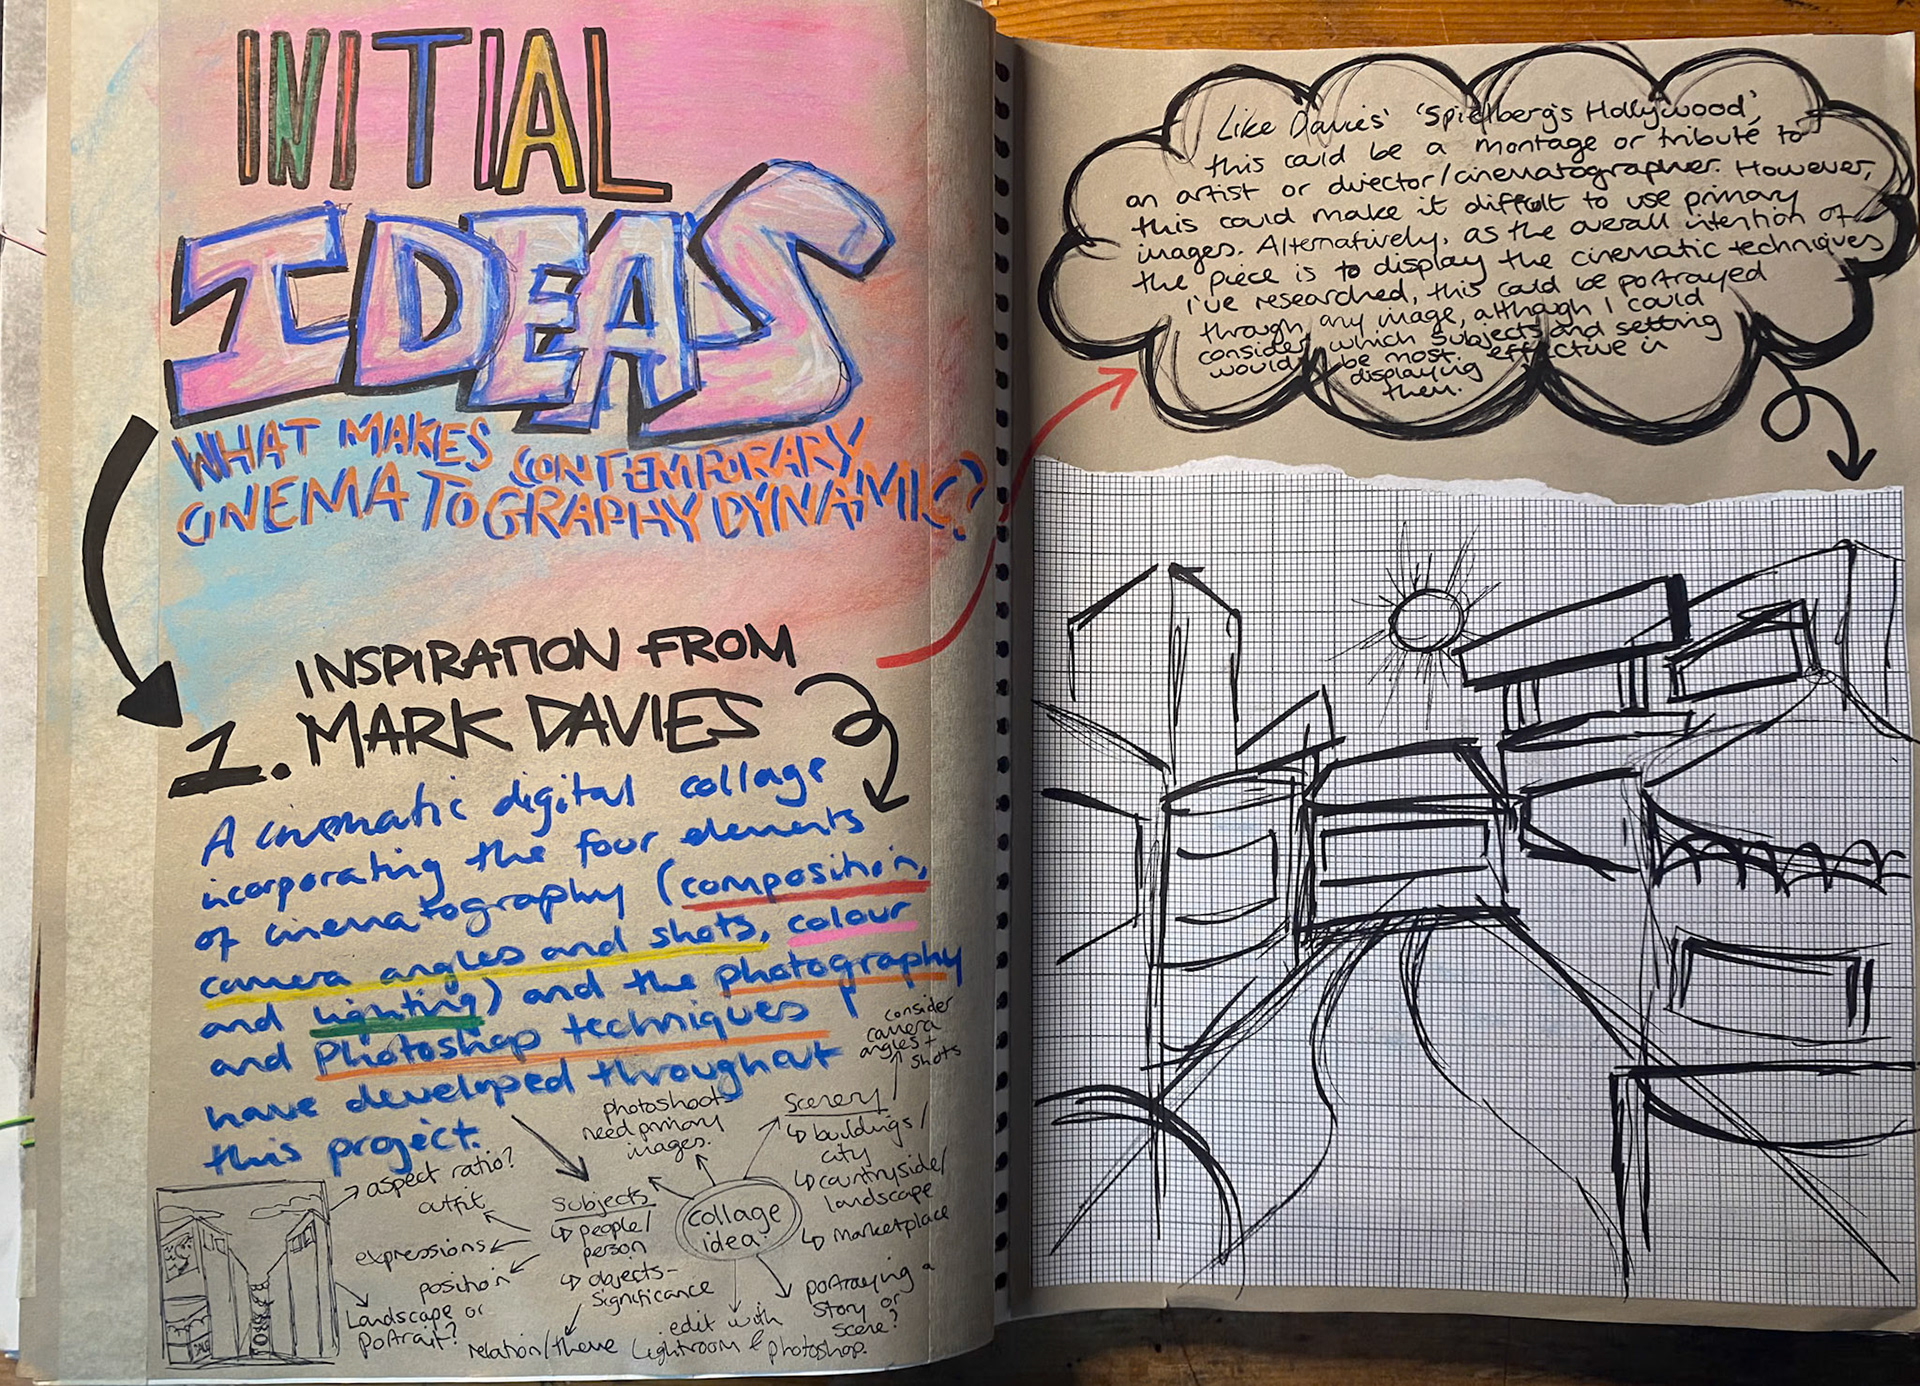 INITIAL
IDEAS
WHAT MAKES CONTEMPORARY
CINEMATOGRAPHY DYNAMIC?
INSPIRATION FROM
1. MARK DAVIES
A cinematic digital collage
incorporating the four elements
of cinematography (composition,
camera angles and shots, colour
and lighting) and the photography
and Photoshop techniques I
have developed throughout
this project.
aspect ratio?
Landscape or
portrait?
outfit
expressions
position
Subjects
↳ people/
person
↳ objects-
significance
relation/theme
photoshoot
need primary
images.
collage
idea
Scenery
↳ buildings/
city
↳ countryside/
landscape
↳ marketplace
consider
camera
angles +
shots
edit with
Lightroom & photoshop.
portraying a
story or
scene?
Like Davies' 'Spielberg's Hollywood',
this could be a montage or tribute to
an artist or director/cinematographer. However,
this could make it difficult to use primary
images. Alternatively, as the overall intention of
the piece is to display the cinematic techniques
I've researched, this could be portrayed
through any image, although I could
consider which subjects and setting
would be most effective in
displaying
them.